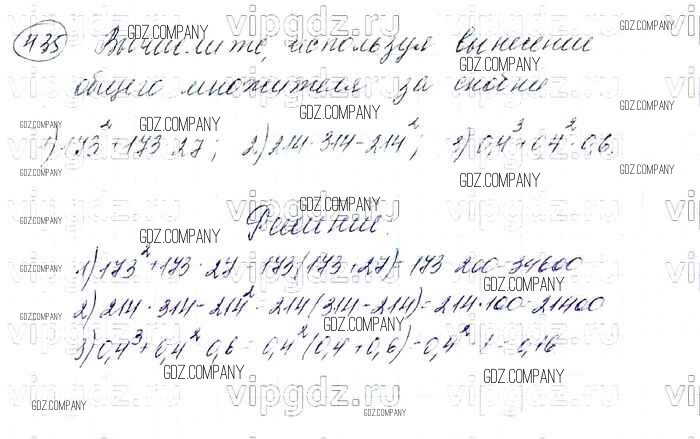 435 Вычислите, используя вынесение
общего множителя за скобки
1) 173² + 173 · 27; 2) 214 · 314 - 214²; 3) 0,4³ + 0,4² · 0,6.
Решение.
1) 173² + 173 · 27 = 173(173 + 27) = 173 · 200 = 34600
2) 214 · 314 - 214² = 214(314 - 214) = 214 · 100 = 21400
3) 0,4³ + 0,4² · 0,6 = 0,4²(0,4 + 0,6) = 0,4² · 1 = 0,16
GDZ.COMPANY
vipgdz.ru